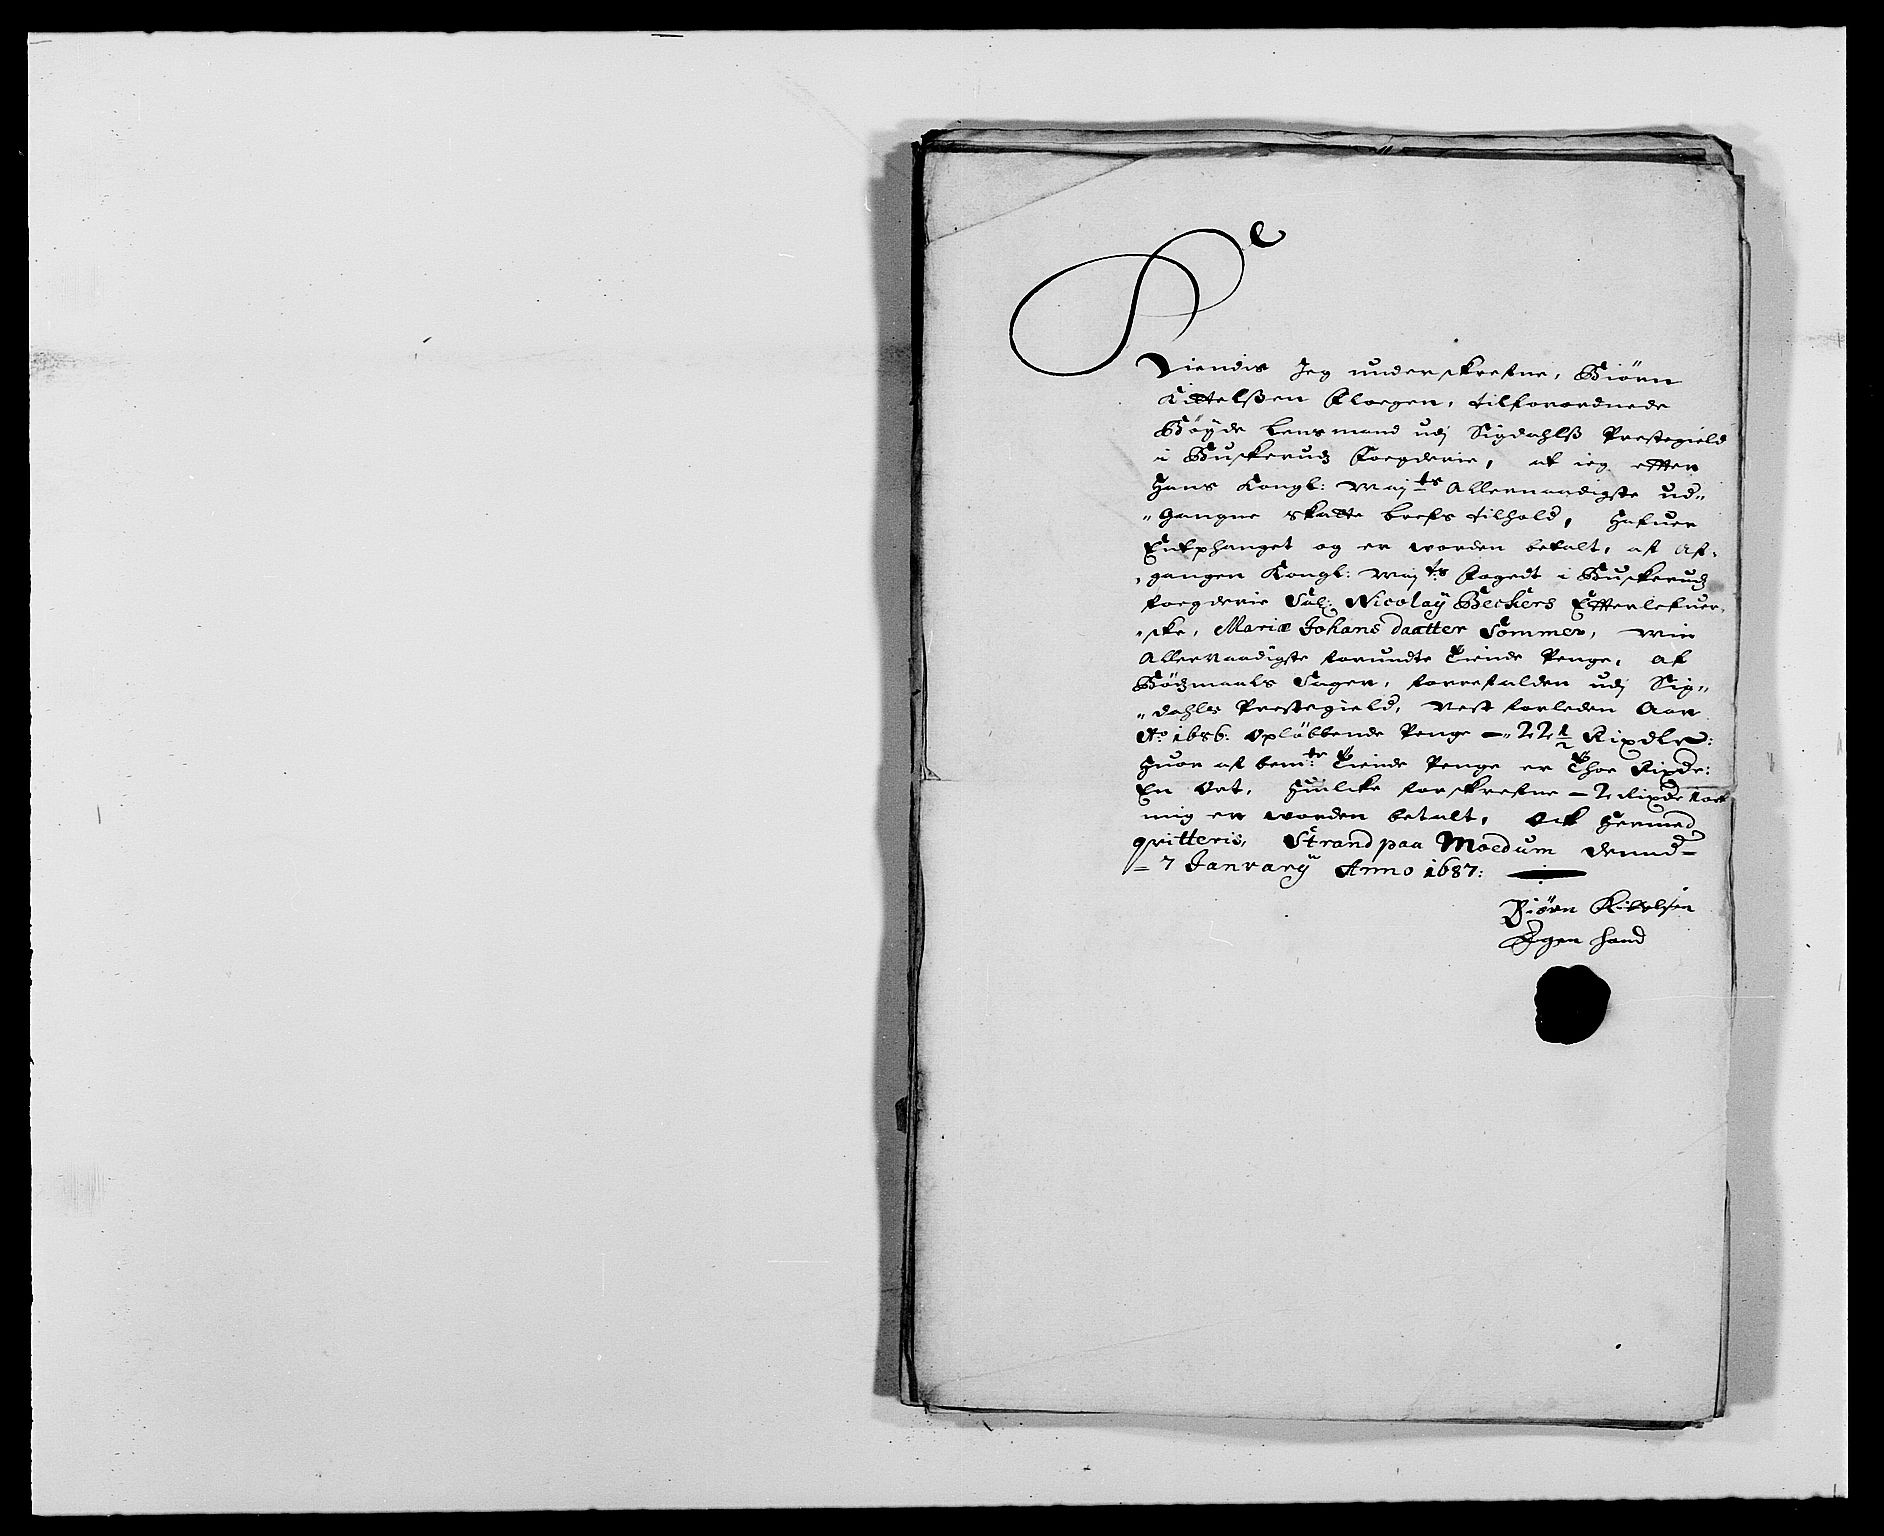 Kiendis Jeg underskrefne, Biörn
Kittelßen Floegen, tilforordnede
Böÿde lensmand udj Sigdahlß Prestegield
i Buskerudz Foegderie, at ieg effter
Hans Kongl: Maj:ts Allernaadigste ud„
„gangne skatte brefs tilhold, Hafuer
Entphanget og er worden betalt, af Af„
„gangen Kongl: Maj:ts Fogedt i Buskerudz
foegderie Sal: Nicolaÿ Beckers Effterlefuer„
„ske, Mariæ Johans daatter Sommer, min
Allernaadigste forundte Tiende Penge, af
Bödzmaals Sager, forrefalden udj Sig„
„dahls Prestegield, Nest forleden Aar
Ao 1686: Opløbbende Penge – 22 1/2 Rixdlr:
Huor af bemte Tiende Penge er Thoe Rixdr:
En Ort, Huilcke forskrefne – 2 Rixdr 1 ort
mig er worden betalt, Och Hermed
qvitteris, Strand paa Moedum dennd –
– 7 Janvarÿ Anno 1687:
Biörn Kittelsen
Egen hand